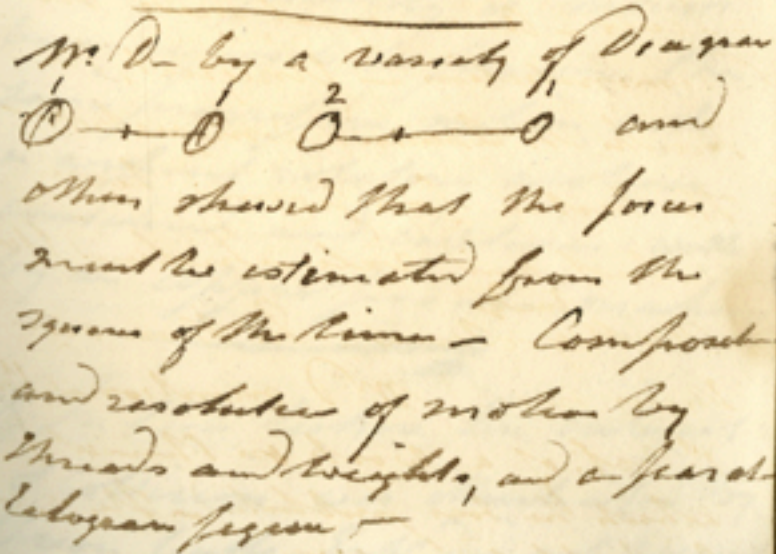 Mr. D— by a variety of Diagram
1 1 2 1 and
others shewed that the forces
must be estimated from the
squares of the times — Composit
and resolution of motion by
threads and weights, and a paral
lelogram figure —